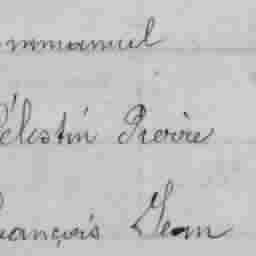 Emmanuel
Célestin Pierre
François Jean